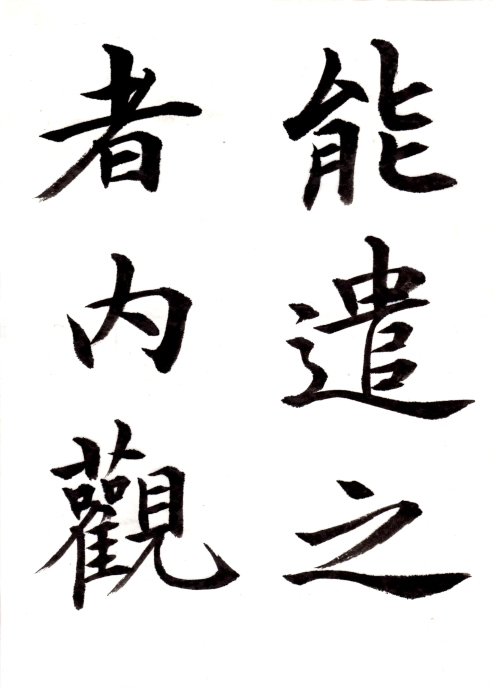 能遣之
者內觀